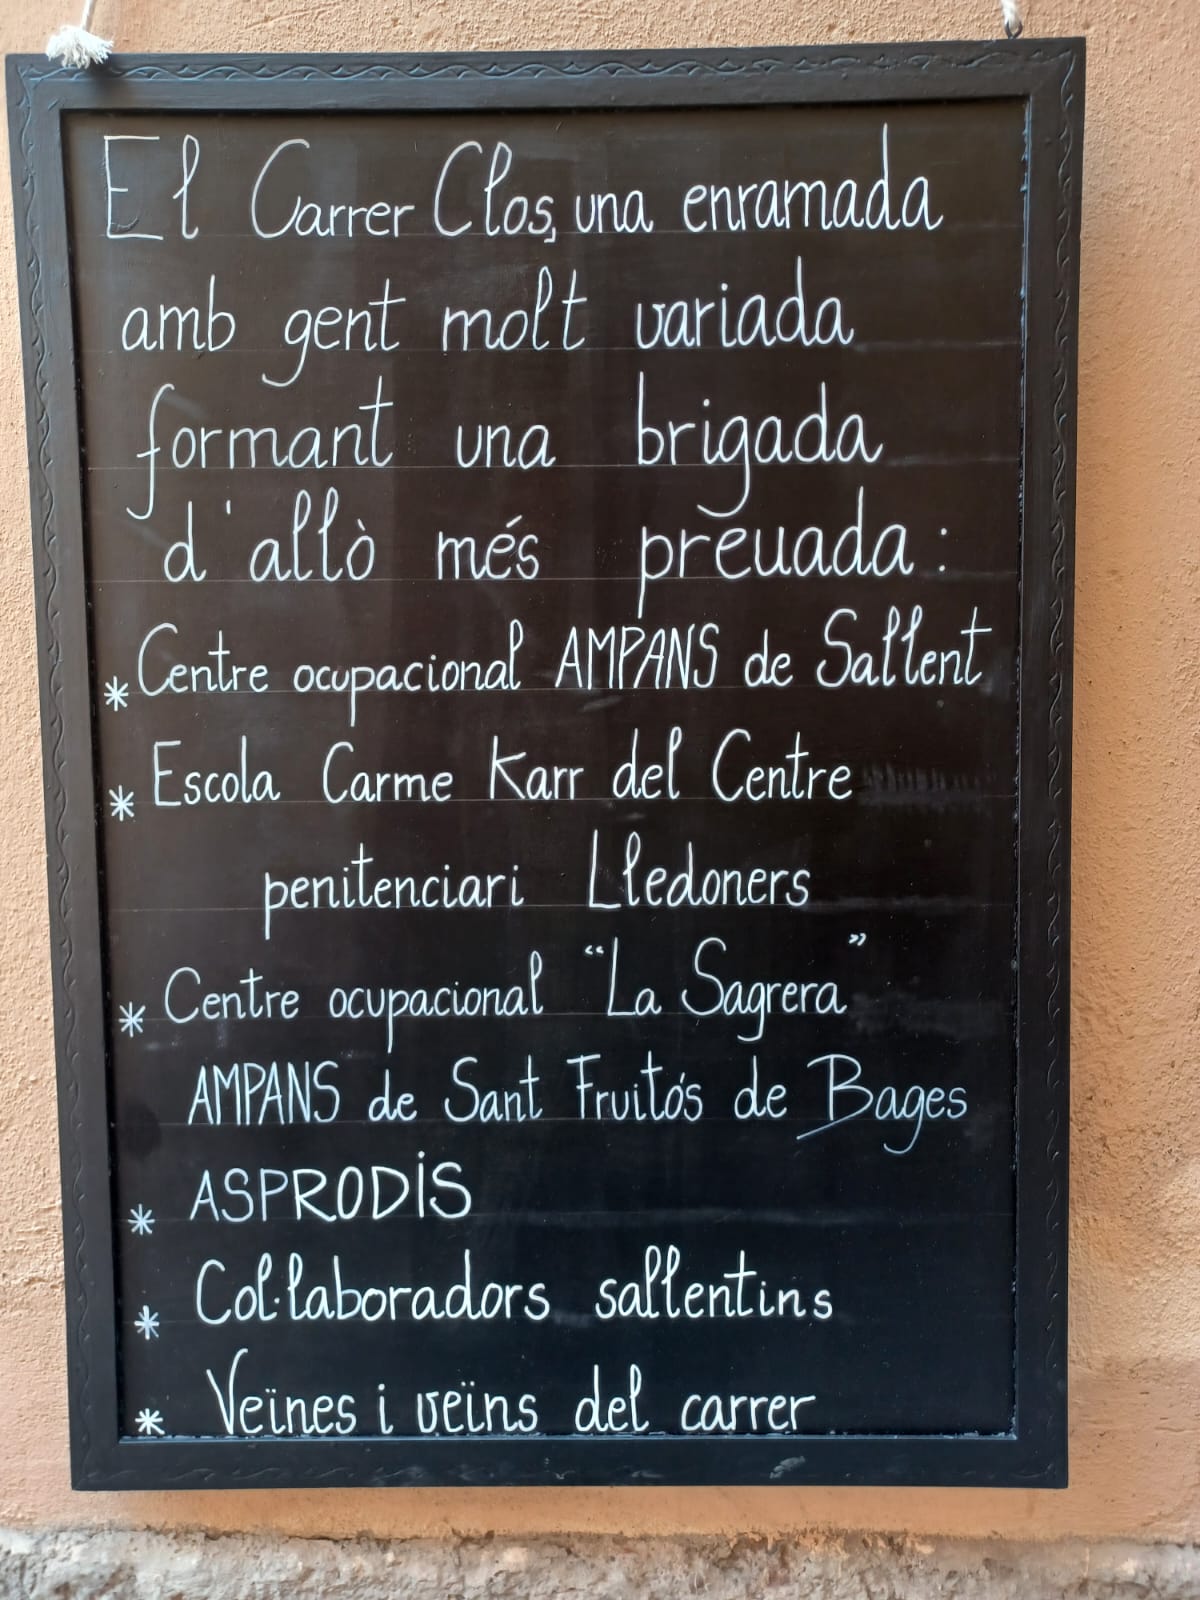 El Carrer Clos, una enramada
amb gent molt variada
formant una brigada
d'allò més preuada:
* Centre ocupacional AMPANS de Sallent
* Escola Carme Karr del Centre
penitenciari Lledoners
* Centre ocupacional "La Sagrera"
AMPANS de Sant Fruitós de Bages
* ASPRODIS
* Col·laboradors sallentins
* Veïnes i veïns del carrer